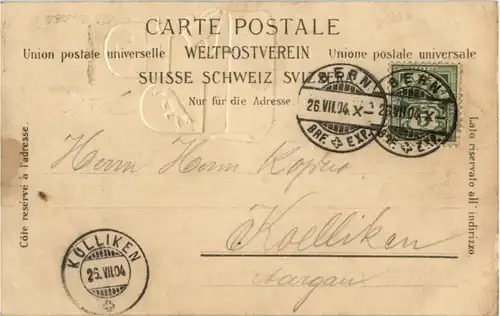 CARTE POSTALE
Union postale universelle WELTPOSTVEREIN Unione postale universale
SUISSE SCHWEIZ SVIZZERA
Nur für die Adresse.
BERN
26.VII.04.X–
BRF. EXP.
BERN
26.VII.04.X–
BRF. EXP.
Côté réservé à l'adresse.
Lato riservato all'indirizzo.
Herrn Herm
Koelliken
Aargau
KÖLLIKEN
26.VII.04